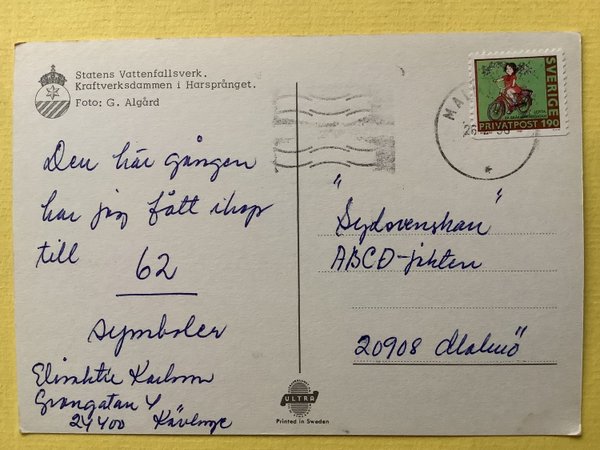 Statens Vattenfallsverk.
Kraftverksdammen i Harsprånget.
Foto: G. Algård
Den här gången
har jag fått ihop
till
62
symboler
Elisabeth Karlsson
Grangatan 4
24400 Kävlinge
ULTRA
Printed in Sweden
SVERIGE
PRIVATPOST 190
MA
"Sydsvenskan"
ABCD-jakten
20908 Malmö